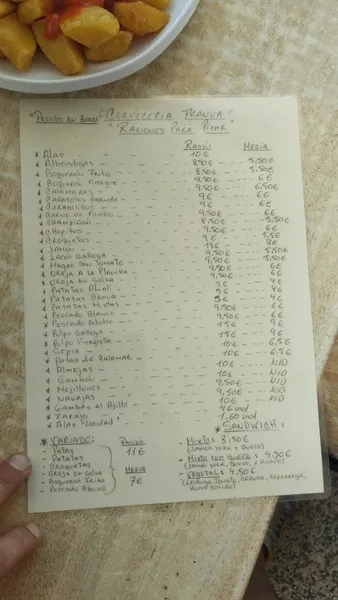 "Precios en Barra" "Cervecería Tranva"
"Raciones Para Picar"
Ración Media
* Alas 10€
* Albondigas 8,50€ 5,50€
* Boquerón Frito 8,50€ 5,50€
* Boquerón Vinagre 9,50€ 6€
* Calamares 9,50€ 6,50€
* Caracoles Grande 9€ 6€
* Caracolitos 9€ 6€
* Carne de Pincho 9,50€ 6€
* Champiñon 8,50€ 5,50€
* Chopitos 9,50€ 6€
* Croquetas 9€ 5,5€
* Jamón 13€ 8€
* Lacón Gallega 9,50€ 5,50€
* Magro con Tomate 9,50€ 5,50€
* Oreja a la Plancha 9,50€ 6€
* Oreja en Salsa 9,50€ 6€
* Patatas Alioli 5€ 4€
* Patatas Brava 5€ 4€
* Patatas Mixtas 5€ 4€
* Pescado Blanco 9,50€ 6€
* Pescado Adobo 9,50€ 6€
* Pulpo Gallega 15€ 9€
* Pulpo Vinagreta 15€ 9€
* Sepia 10€ 6,5€
* Patas de Calamar 10€ 6,5€
* Almejas 10€ N/D
* Gambón 10€ N/D
* Mejillones 9,50€ N/D
* Navajas 9,50€ N/D
* Gambas al Ajillo 10€ N/D
* Zarajo
* Alas "Unidad" 1,60 und
* Variado: Ración 11€ Media 7€
- Patatas
- Croquetas
- Oreja en Salsa
- Boquerón Frito
- Pescado Blanco
* Sandwich:
- Mixto: 3,50€
(Jamón York y Queso)
- Mixto con Huevo: 4,90€
(Jamón York, Queso, y Huevo)
- Vegetal: 4,50€
(Lechuga, Tomate, Esparrago,
Huevo Cocido)